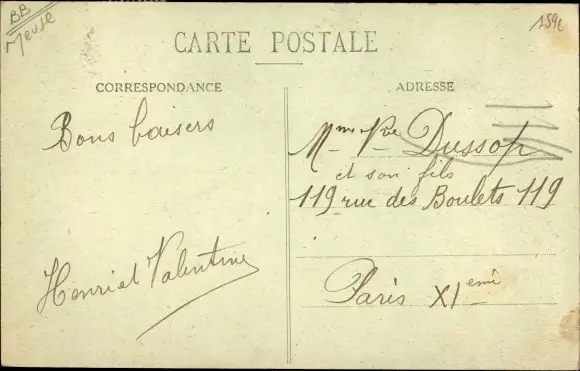 BB
Meuse
CARTE POSTALE
CORRESPONDANCE
Bons baisers
Henri et Valentine
ADRESSE
Mme Vve Dussop
et son fils
119 rue des Boulets 119
Paris XIeme